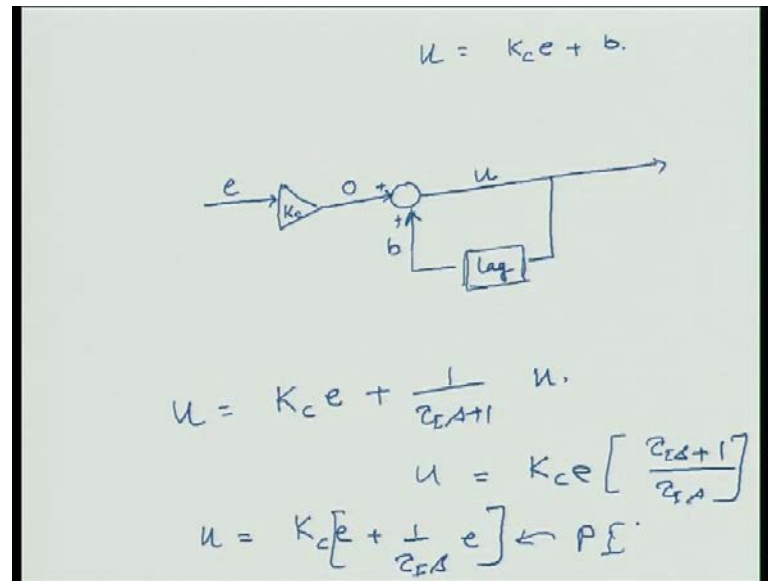 u = Kce + b.
e Kc 0 + u
+
b Lag
u = Kce + 1/(τIs+1) u.
u = Kce [ (τIs+1)/(τIs) ]
u = Kc[e + 1/(τIs) e] ← PI